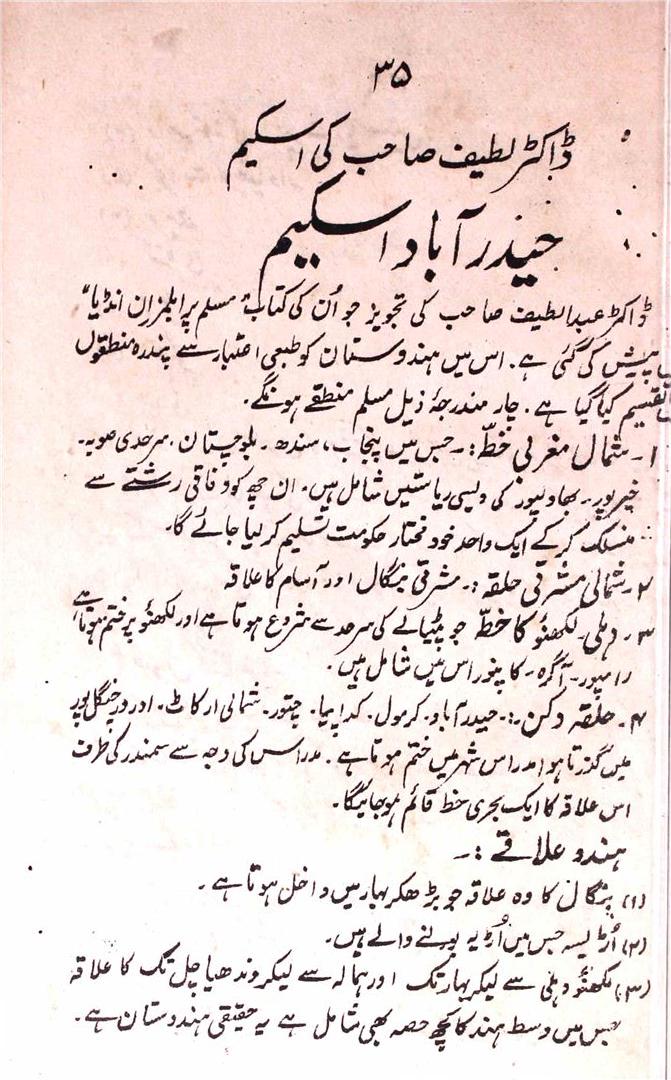 ۳۵
ڈاکٹر لطیف صاحب کی اسکیم
حیدرآباد اسکیم
ڈاکٹر عبدالطیف صاحب کی تجویز جو اُن کی کتاب "مسلم پرابلمز ان انڈیا"
میں پیش کی گئی ہے۔ اس میں ہندوستان کو طبعی اعتبار سے پندرہ منطقوں
تقسیم کیا گیا ہے۔ چار مندرجۂ ذیل مسلم منطقے ہونگے۔
۱۔ شمال مغربی خطّہ:۔ جس میں پنجاب، سندھ۔ بلوچستان۔ سرحدی صوبہ۔
خیرپور۔ بھاولپور کی دیسی ریاستیں شامل ہیں۔ ان چھ کو وفاقی رشتے سے
منسلک کر کے ایک واحد خود مختار حکومت تسلیم کر لیا جائے گا۔
۲۔ شمالی مشرقی حلقہ:۔ مشرقی بنگال اور آسام کا علاقہ
۳۔ دہلی۔ لکھنؤ کا خطّہ جو پٹیالے کی سرحد سے شروع ہوتا ہے اور لکھنؤ پر ختم ہوتا ہے
رامپور۔ آگرہ۔ کانپور اس میں شامل ہیں۔
۴۔ حلقہ دکن:۔ حیدرآباد۔ کرمول۔ کداپیا۔ چتور۔ شمالی ارکاٹ۔ اور چنگل پور
میں گذرتا ہوا مدراس شہر میں ختم ہوتا ہے۔ مدراس کی وجہ سے سمندر کی طرف
اس علاقہ کا ایک بحری خط قائم ہو جائیگا۔
ہندو علاقے:۔
(۱) بنگال کا وہ علاقہ جو بڑھکر بہار میں داخل ہوتا ہے۔
(۲) اُڑیسہ جس میں اُڑیہ بولنے والے ہیں۔
(۳) لکھنؤ دہلی سے لیکر بہار تک اور ہمالہ سے لیکر وندھیاچل تک کا علاقہ
جس میں وسط ہند کا کچھ حصہ بھی شامل ہے یہ حقیقی ہندوستان ہے۔